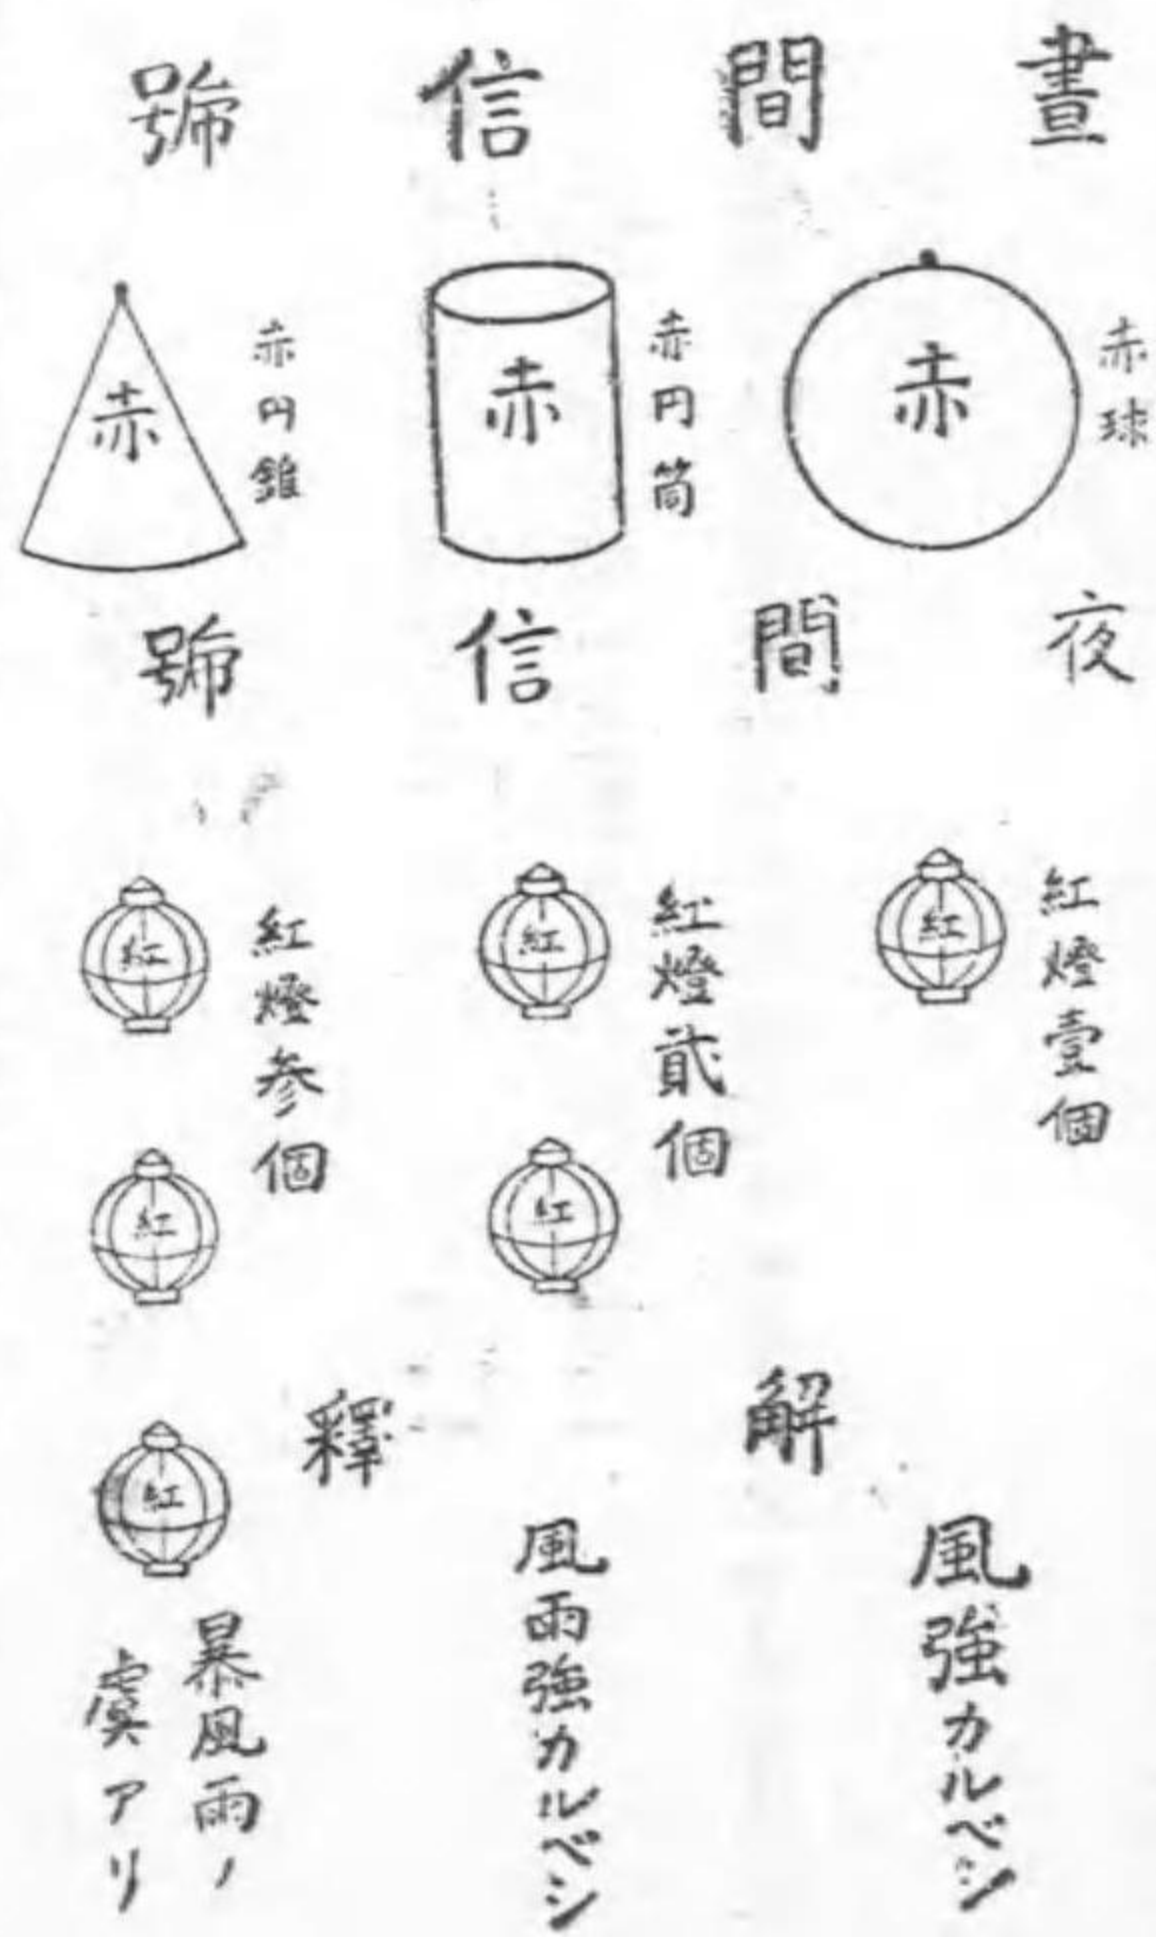 晝間信號
赤球
赤
赤円筒
赤
赤円錐
赤
夜間信號
紅燈壹個
紅
紅燈貳個
紅
紅
紅燈参個
紅
紅
紅
解釋
風強カルベシ
風雨強カルベシ
暴風雨ノ
虞アリ